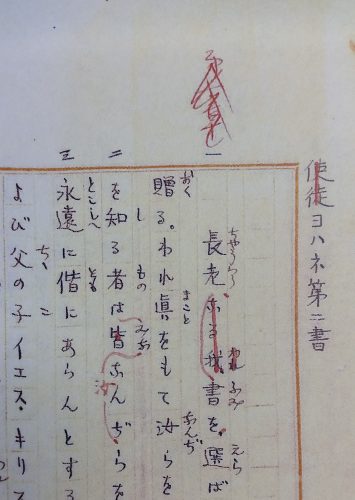 使徒ヨハネ第二書
一
長老なる我、書を。選ば
贈る。われ眞をもて汝らを
二
を知る者は皆なんぢらを
汝
三
永遠に偕にあらんとする
よび父の子イエス・キリス